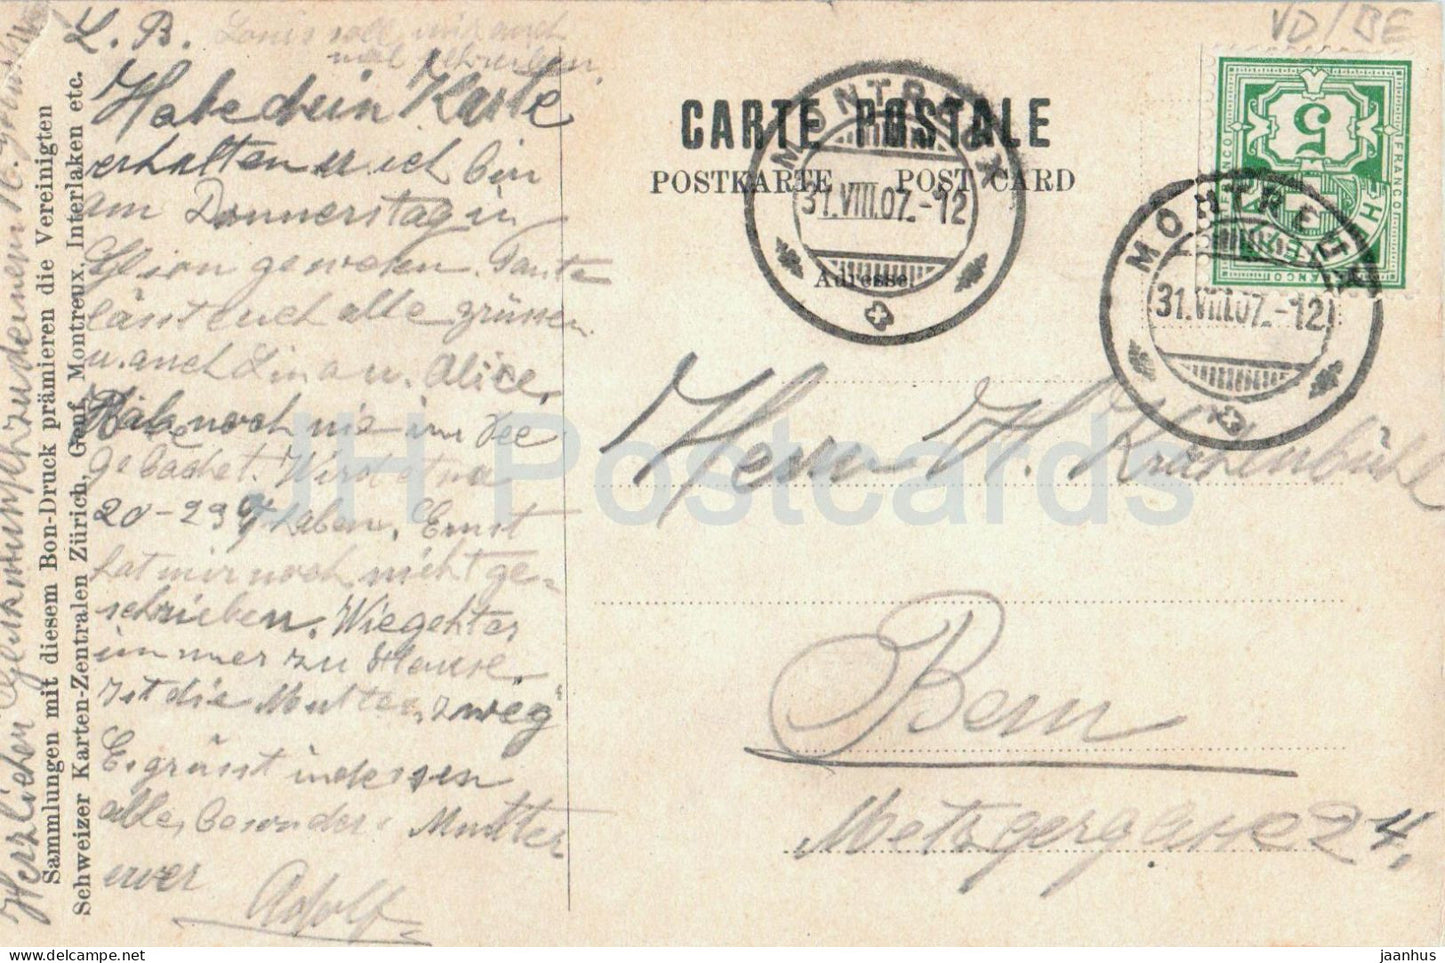 L. B. Louis soll mir auch
mal schreiben.
Habe dein Karte
erhalten u. ich bin
am Donnerstag in
Glion gewesen. Tante
lässt euch alle grüssen
u. auch Lina u. Alice.
Habe noch nie im See
gebadet. Wird etwa
20-23° haben. Ernst
hat mir noch nicht ge-
schrieben. Wie geht es
immer zu Hause.
Ist die Mutter zweg
Es grüsst indessen
alle besonders Mutter
euer Adolf
Herzlichen Glückwunsch zu deinem 16.
Sammlungen mit diesem Bon-Druck prämieren die Vereinigten
Schweizer Karten-Zentralen Zürich, Genf, Montreux, Interlaken etc.
VD/BE
CARTE POSTALE
POSTKARTE POST CARD
Adresse
MONTREUX
31.VIII.07.-12
MONTREUX
31.VIII.07.-12
5
FRANCO
HELVETIA
Herrn H. Krähenbühl
Bern
Metzgergasse 24.
JH Postcards
jaanhus